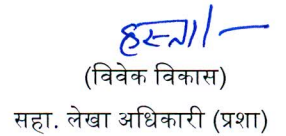 हस्ता/-
(विवेक विकास)
सहा. लेखा अधिकारी (प्रशा)